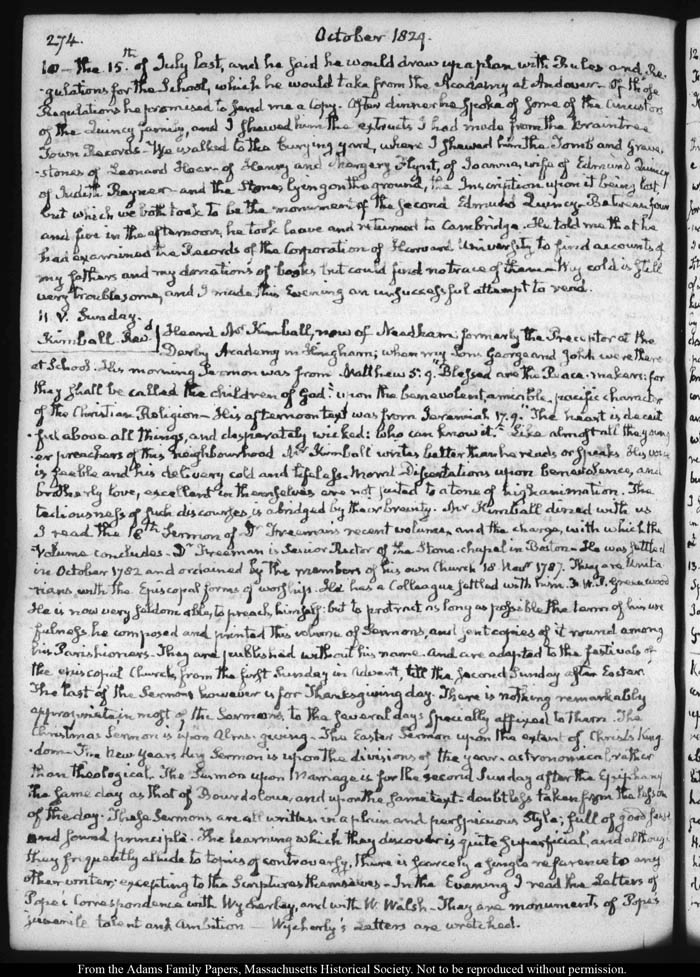 274. October 1829.
10 - the 15th of July last, and he said he would draw up a plan with Rules and Re-
-gulations for the School, which he would take from the Academy at Andover - Of these
Regulations he promised to send me a Copy. After dinner he spoke of some of the Ancestors
of the Quincy family, and I shewed him the extracts I had made from the Braintree
Town Records - We walked to the burying yard, where I shewed him the Tomb and grave
stones of Leonard Hoar - of Henry and Margery Flynt, of Joanna, wife of Edmund Quincy
of Judith Rayner - and the Stone, lying on the ground, the Inscription upon it being lost
but which we both took to be the monument of the second Edmund Quincy. Between four
and five in the afternoon, he took leave and returned to Cambridge. He told me that he
had examined the Records of the Corporation of Harvard University to find accounts of
my fathers and my donations of books but could find no trace of them - My cold is still
very troublesome, and I made this Evening an unsuccessful attempt to read.
V. Sunday.
Kimball Revd Heard Mr Kimball, now of Needham; formerly the Preceptor at the
Derby Academy in Hingham; when my Sons George and John were there
at School. His morning Sermon was from Matthew 5. 9. Blessed are the Peace-makers: for
they shall be called the children of God." upon the benevolent, amicable, pacific character
of the Christian Religion - His afternoon text was from Jeremiah 17. 9. "The heart is deceit
-ful above all things, and desperately wicked: who can know it." Like almost all the young
er preachers of this neighbourhood Mr Kimball writes better than he reads or speaks. His voice
is feeble and his delivery cold and lifeless. Moral Dissertations upon benevolence, and
brotherly love, excellent in themselves are not suited to a tone of high animation. The
tediousness of such discourses, is abridged by their brevity. Mr Kimball dined with us
I read the 16th Sermon of Dr Freeman's recent volume, and the charge, with which the
Volume concludes. Dr Freeman is Senior Rector of the Stone-chapel in Boston - He was settled
in October 1782 and ordained by the members of his own Church 18 Novr 1787. They are Unita
rians with the Episcopal forms of worship. He has a Colleague settled with him. F. W. P. Greenwood
He is now very seldom able to preach, himself; but to protract as long as possible the term of his use
fulness he composed and printed this volume of Sermons, and sent copies of it round among
his Parishioners. They are published without his name. And are adapted to the festivals of
the episcopal Church, from the first Sunday in Advent, till the second Sunday after Easter.
The last of the Sermons however is for Thanksgiving day. There is nothing remarkably
appropriate in most of the Sermons to the several days specially affixed to them. The
Christmas Sermon is upon Alms-giving - The Easter Sermon upon the extent of Christs King
-dom - The New Years day Sermon is upon the divisions of the year - astronomical rather
than theological. The Sermon upon Marriage is for the second Sunday after the Epiphany
the same day as that of Bourdaloue, and upon the same text - doubtless taken from the lesson
of the day. These Sermons are all written in a plain and perspicuous style; full of good sense
and sound principle. The learning which they discover is quite superficial, and although
they frequently allude to topics of controversy, there is scarcely a single reference to any
other writer, excepting to the Scriptures themselves - In the Evening I read the Letters of
Pope's Correspondence with Wycherley, and with W. Walsh - They are monuments of Pope's
juvenile talent and Ambition - Wycherly's Letters are wretched.
From the Adams Family Papers, Massachusetts Historical Society. Not to be reproduced without permission.